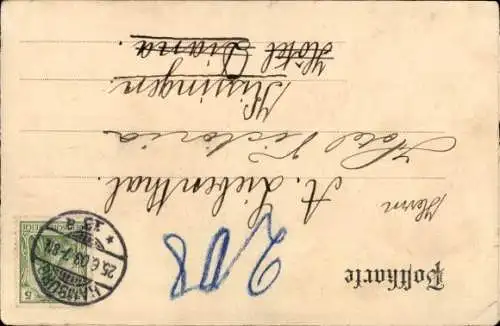 Postkarte
Herrn
A. Liebenthal.
Hotel Victoria
Kissingen.
Hôtel Diana
208
HAMBURG
25.6.03.7-8
* 13 *
5
REICH